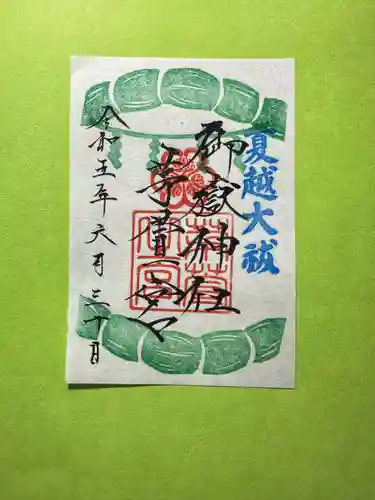 夏越大祓
御嶽神社
茅萱宮
令和五年六月三十日